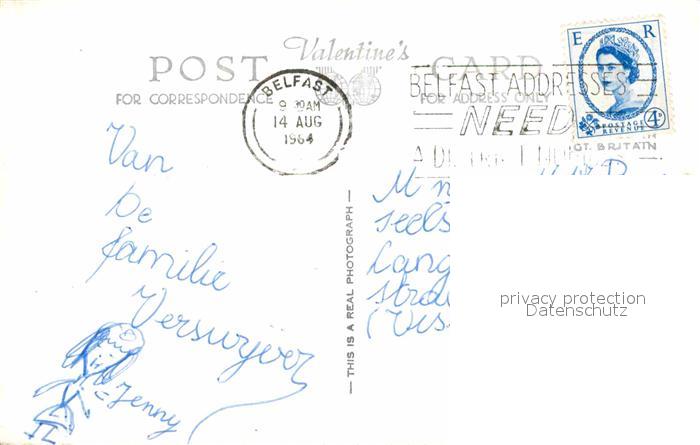 POST Valentine's CARD
FOR CORRESPONDENCE FOR ADDRESS ONLY
BELFAST
9 30AM
14 AUG
1964
BELFAST ADDRESSES
NEED
E R
POSTAGE REVENUE 4D
GT. BRITAIN
Van
De
familie
Verswyver
Jenny
THIS IS A REAL PHOTOGRAPH
privacy protection
Datenschutz